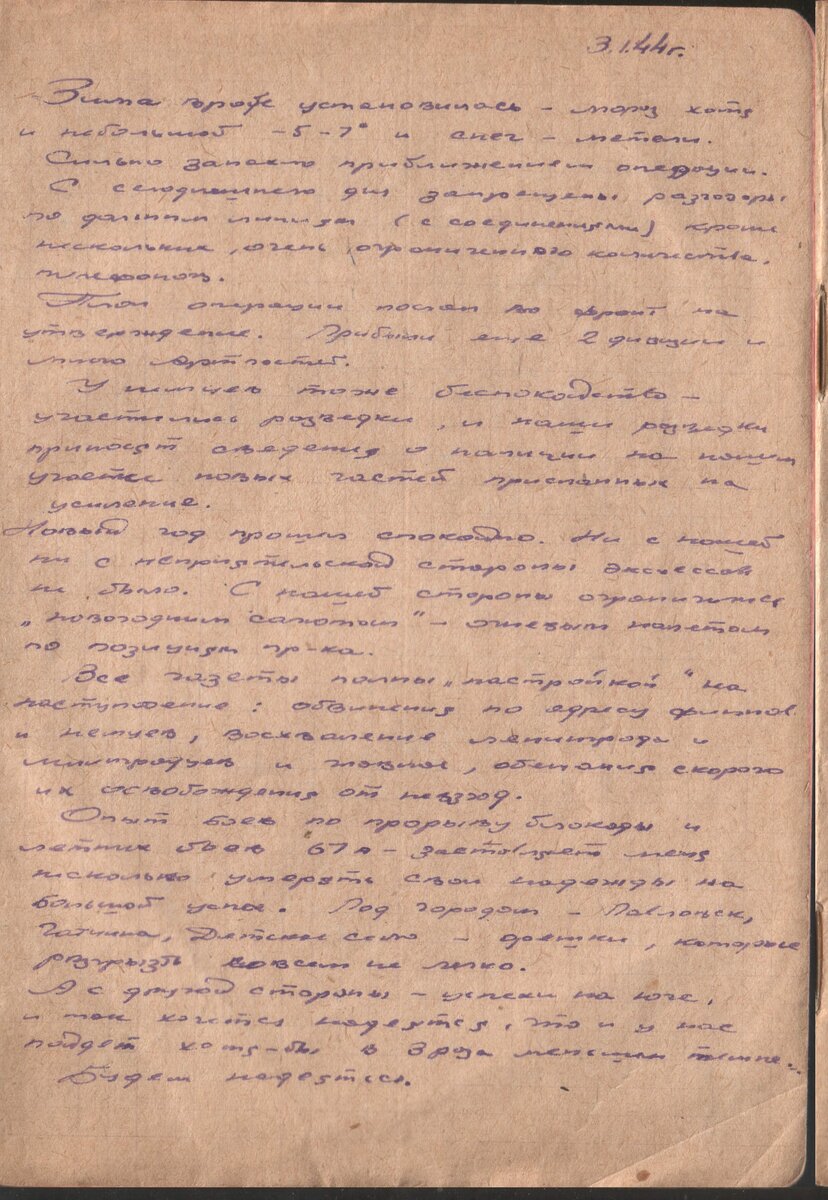 3.I.44г.
Зима вроде установилась – мороз хотя
и небольшой -5-7° и снег – метели.
Сильно запахло приближением операции.
С сегодняшнего дня запрещены разговоры
по дальним линиям (с соединениями) кроме
нескольких, очень ограниченного количества,
телефонов.
План операции послан во фронт на
утверждение. Прибыли еще 2 дивизии и
много артчастей.
У немцев тоже беспокойство –
участились разведки, и наши разведки
приносят сведения о наличии на нашем
участке новых частей присланных на
усиление.
Новый год прошел спокойно. Ни с нашей
ни с неприятельской стороны эксцессов
не было. С нашей стороны ограничились
„новогодним салютом“ – огневым налетом
по позициям пр-ка.
Все газеты полны „настройкой“ на
наступление: обвинения по адресу финнов
и немцев, восхваление Ленинграда и
ленинградцев и главное, обещания скорого
их освобождения от невзгод.
Опыт боев по прорыву блокады и
летних боев 67А – заставляет меня
несколько умерять свои надежды на
большой успех. Под городом – Павловск,
Гатчина, Детское село – орешки, которые
разгрызть совсем не легко.
А с другой стороны – успехи на юге,
и так хочется надеятся, что и у нас
пойдет хотя-бы в 3 раза меньшим темпе...
Будем надеяться.